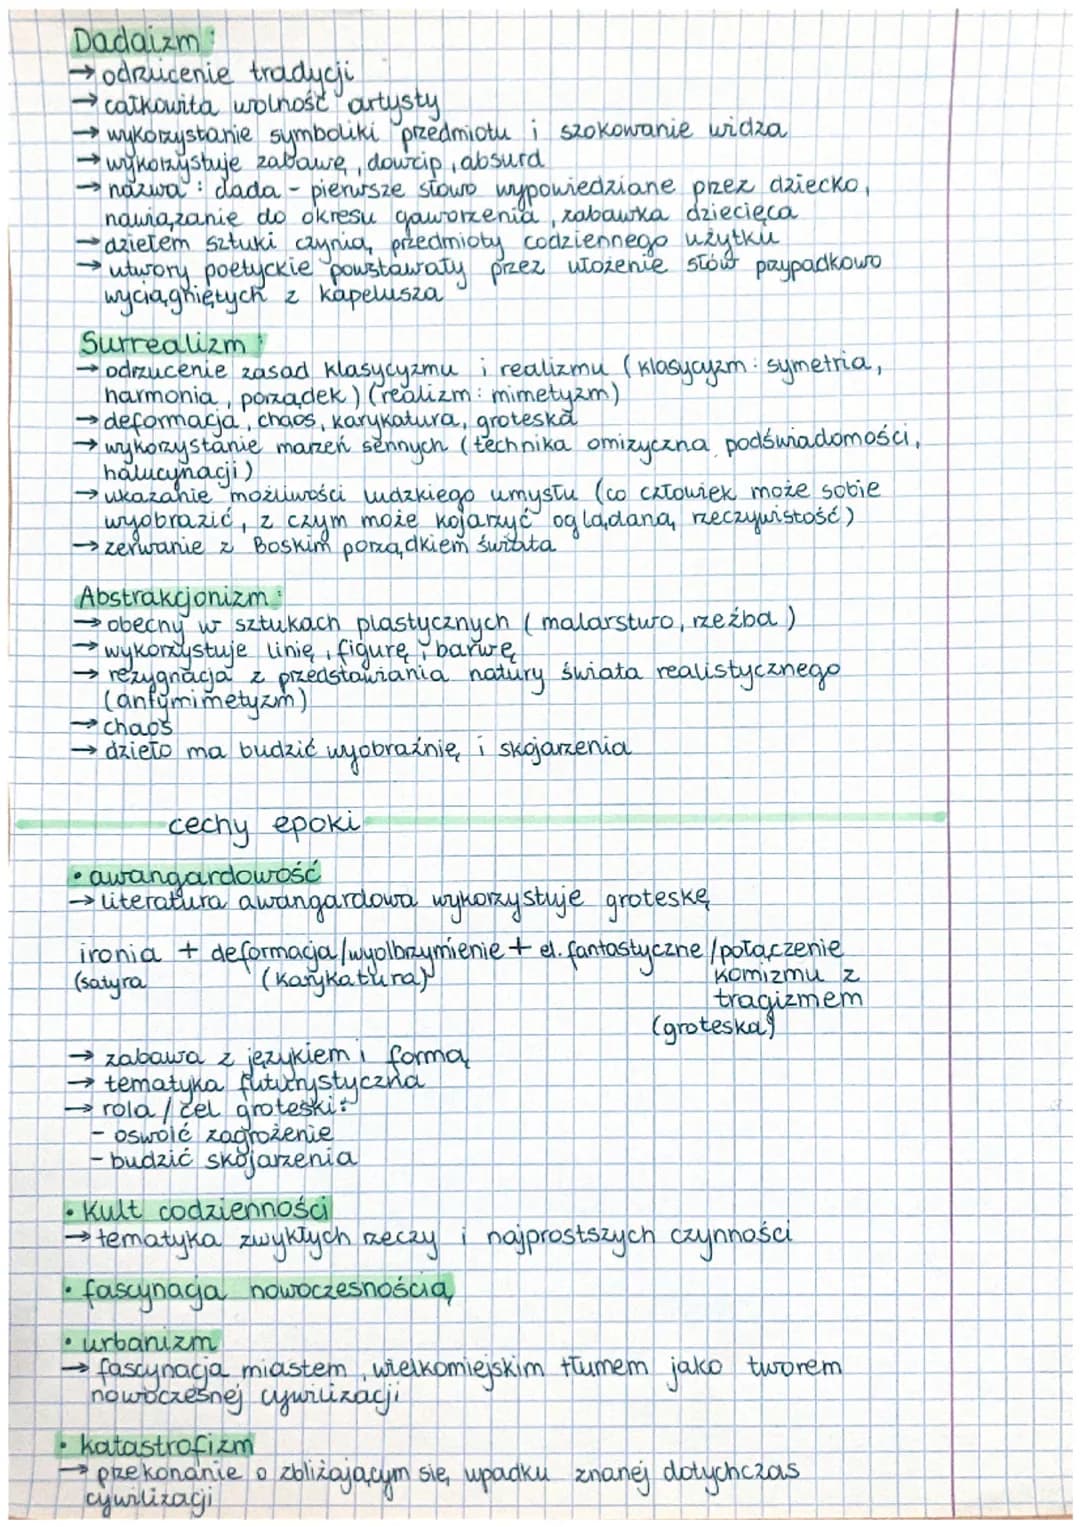 Dadaizm:
→ odrzucenie tradycji
→ całkowita wolność artysty
→ wykorzystanie symboliki przedmiotu i szokowanie widza
→ wykorzystuje zabawę, dowcip, absurd
→ nazwa: dada - pierwsze słowo wypowiedziane przez dziecko,
nawiązanie do okresu gaworzenia, zabawka dziecięca
→ dziełem sztuki czynią przedmioty codziennego użytku
→ utwory poetyckie powstawały przez ułożenie słów przypadkowo
wyciągniętych z kapelusza
Surrealizm:
→ odrzucenie zasad klasycyzmu i realizmu (klasycyzm: symetria,
harmonia, porządek) (realizm: mimetyzm)
→ deformacja, chaos, karykatura, groteska
→ wykorzystanie marzeń sennych (technika omizyczna, podświadomości,
halucynacji)
→ ukazanie możliwości ludzkiego umysłu (co człowiek może sobie
wyobrazić, z czym może kojarzyć oglądaną rzeczywistość)
→ zerwanie z Boskim porządkiem świata
Abstrakcjonizm:
→ obecny w sztukach plastycznych (malarstwo, rzeźba)
→ wykorzystuje linię, figurę, barwę
→ rezygnacja z przedstawiania natury świata realistycznego
(antymimetyzm)
→ chaos
→ dzieło ma budzić wyobraźnię i skojarzenia
cechy epoki
• awangardowość
→ literatura awangardowa wykorzystuje groteskę
ironia + deformacja/wyolbrzymienie + el. fantastyczne/połączenie
(satyra (karykatura) komizmu z
tragizmem
(groteska)
→ zabawa z językiem i formą
→ tematyka futurystyczna
→ rola/cel groteski:
- oswoić zagrożenie
- budzić skojarzenia
• kult codzienności
→ tematyka zwykłych rzeczy i najprostszych czynności
• fascynacja nowoczesnością
• urbanizm
→ fascynacja miastem, wielkomiejskim tłumem jako tworem
nowoczesnej cywilizacji
• katastrofizm
→ przekonanie o zbliżającym się upadku znanej dotychczas
cywilizacji